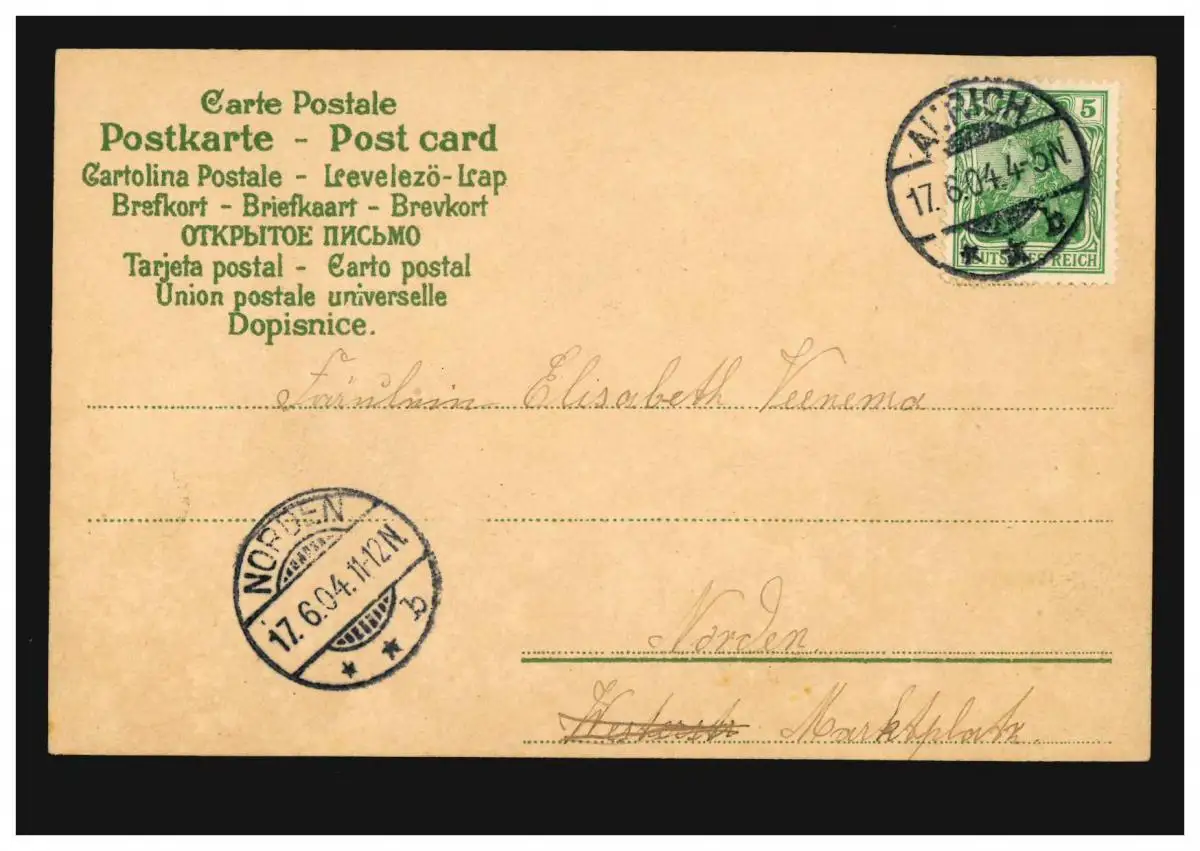 Carte Postale
Postkarte - Post card
Cartolina Postale - Levelezö-Lap
Brefkort - Briefkaart - Brevkort
ОТКРЫТОЕ ПИСЬМО
Tarjeta postal - Carto postal
Union postale universelle
Dopisnice.
AURICH
17. 6.04. 4-5N
b
5
DEUTSCHES REICH
Fäulein Elisabeth Veenema
NORDEN
17. 6.04. 11-12N.
b
Norden.
Marktplatz.